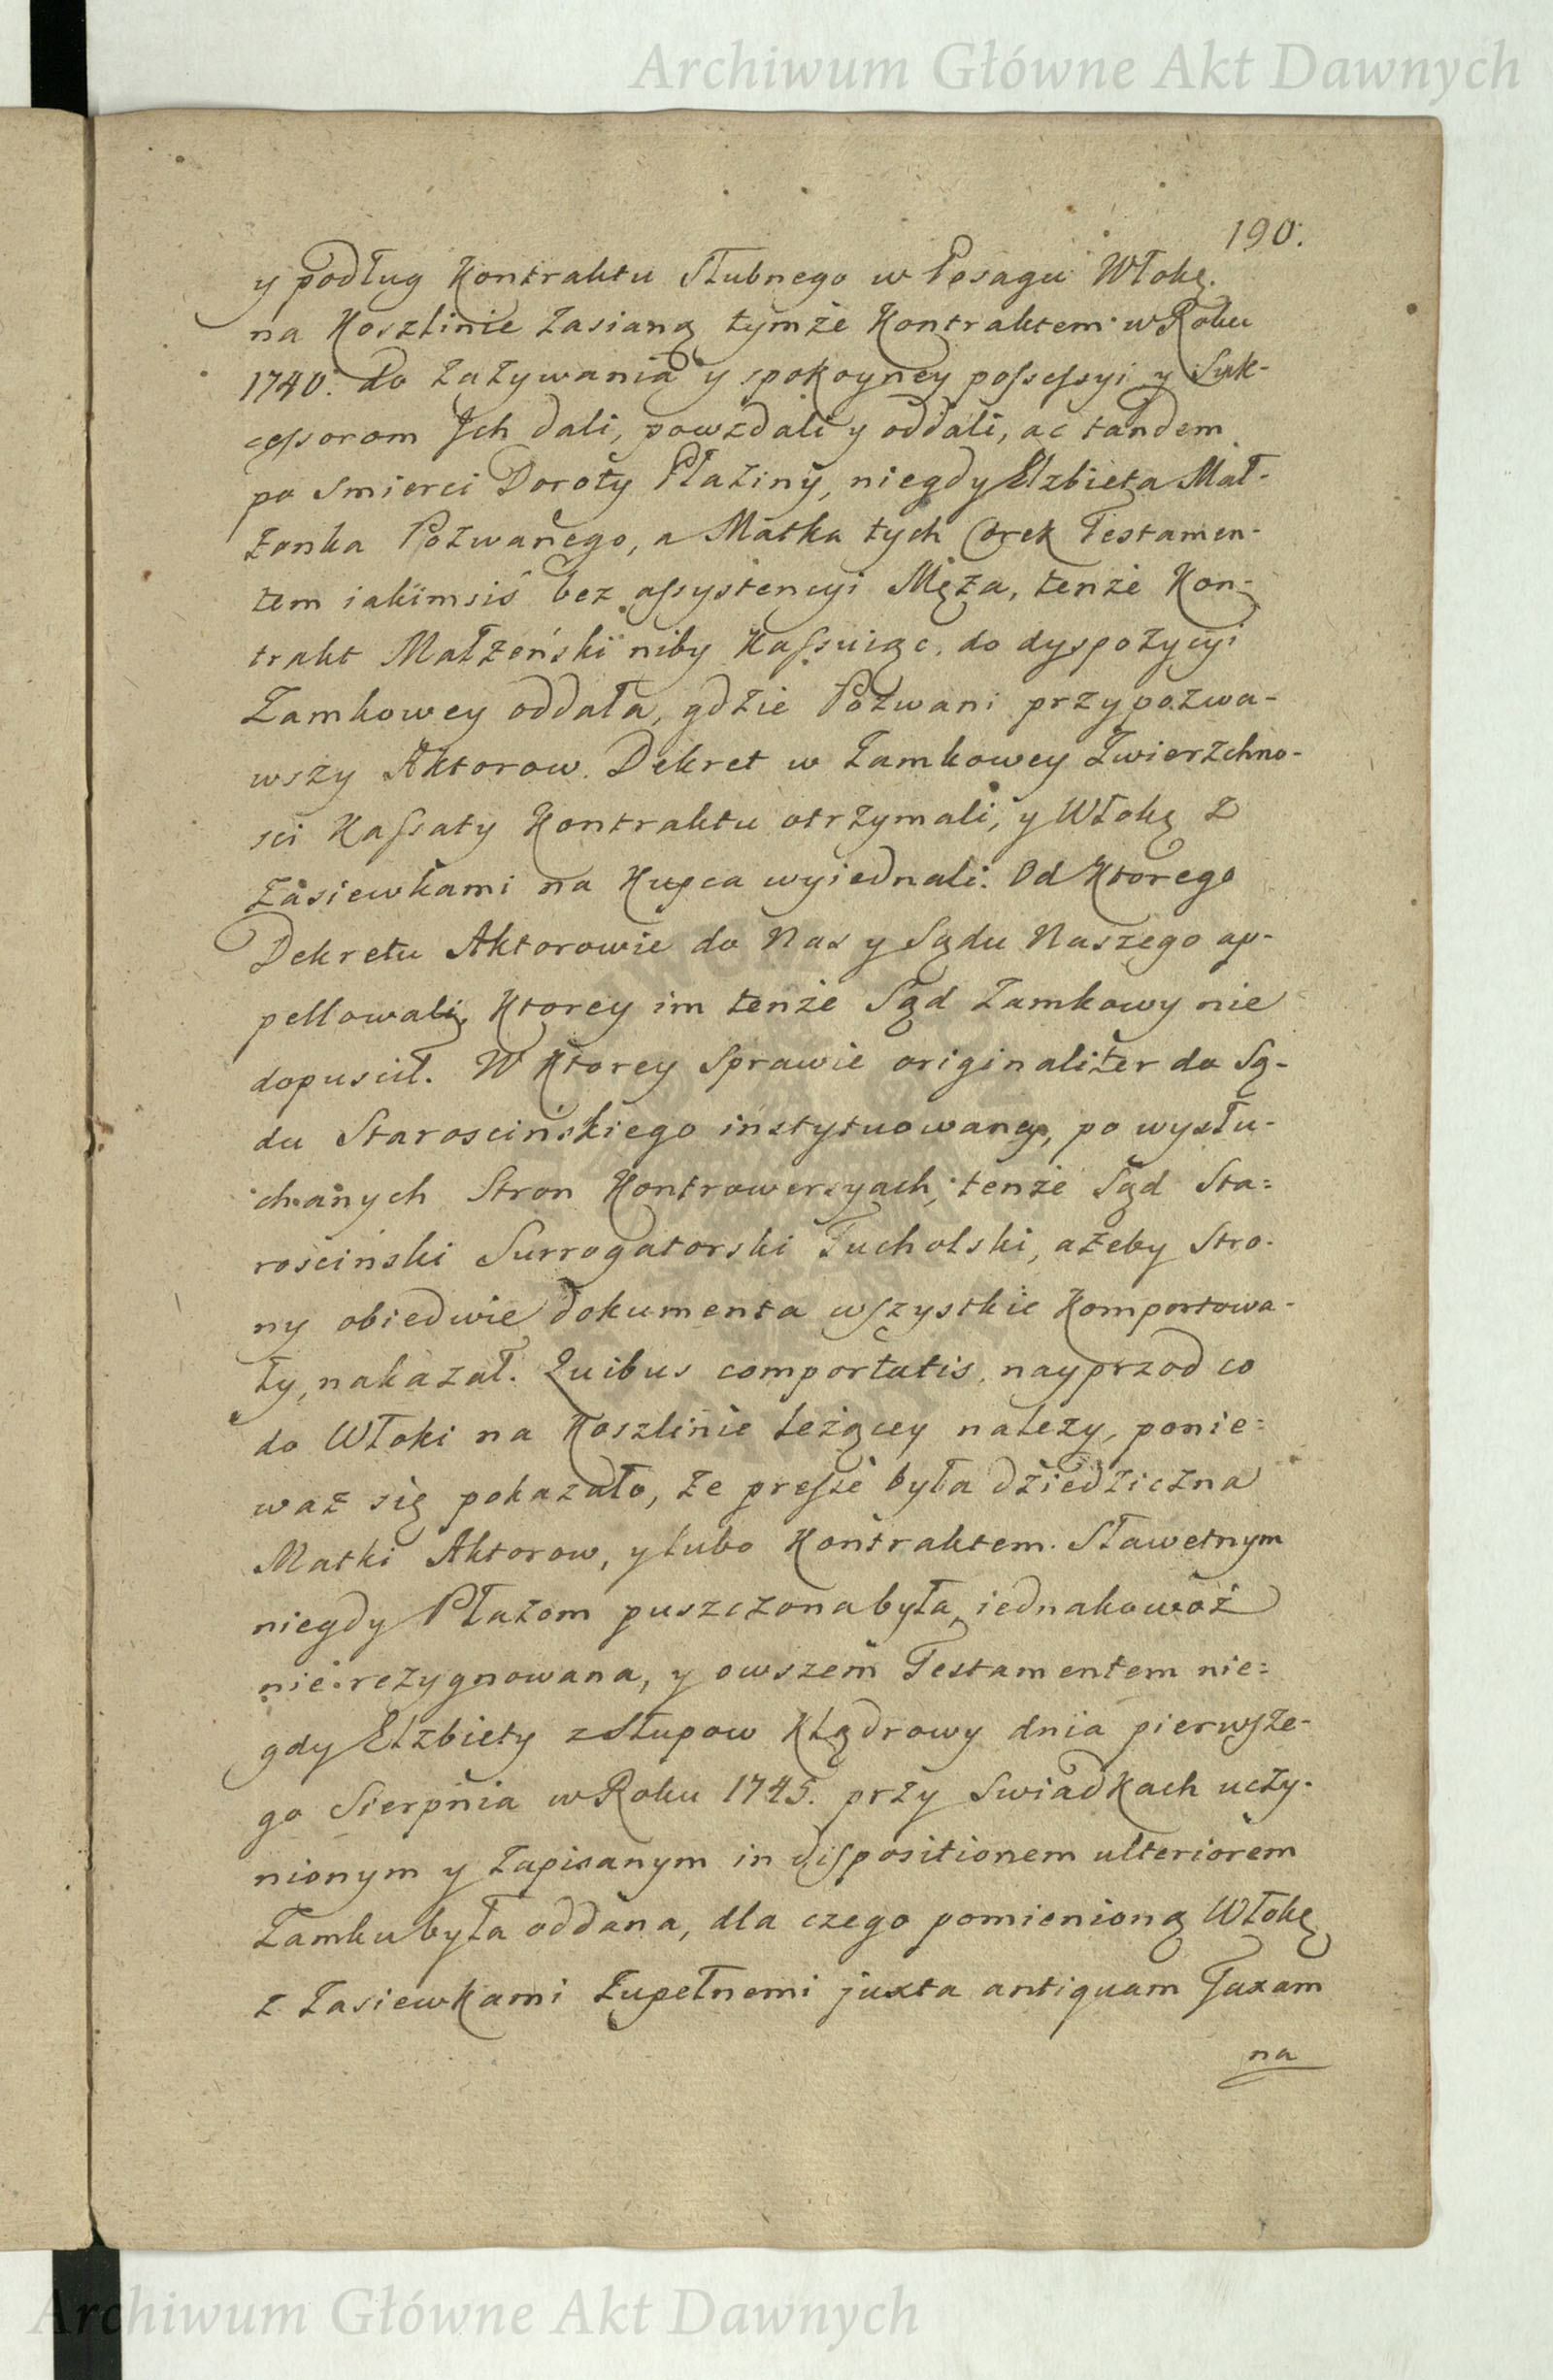 Archiwum Główne Akt Dawnych
190.
y podług Kontraktu Slubnego w Posagu Włokę
na Koszlinie zasianą tymże Kontraktem w Roku
1740. do zażywania y spokoyney possessyi y Suk-
cessorom Ich dali, powzdali y oddali, ac tandem
po smierci Doroty Płaziny, niegdy Elzbieta Mał-
żonka Pozwanego, a Matka tych Corek Testamen-
tem iakimsiś bez assystencyi Męża, tenże Kon-
trakt Małżeński niby Kassuiąc, do dyspozycyi
Zamkowey oddała, gdzie Pozwani przypozwa-
wszy Aktorow. Dekret w Zamkowey Zwierzchno-
sci Kassaty Kontraktu otrzymali, y Włokę z
Zasiewkami na Kupca wyiednali. Od Ktorego
Dekretu Aktorowie do Nas y Sądu Naszego ap-
pellowali, Ktorey im tenże Sąd Zamkowy nie
dopuscił. W Ktorey Sprawie originaliter do Są-
du Staroscińskiego instytuowaney, po wysłu-
chanych Stron Kontrowersyach, tenże Sąd Sta=
rosciński Surrogatorski Tucholski, ażeby Stro-
ny obiedwie dokumenta wszystkie Komportowa-
ły, nakazał. Quibus comportatis, nayprzod co
do Włoki na Koszlinie leżącey należy, ponie=
waż się pokazało, że presse była dziedziczna
Matki Aktorow, y lubo Kontraktem Sławetnym
niegdy Płazom puszczona była, iednakowoż
nie rezygnowana, y owszem Testamentem nie=
gdy Elzbiety z Słupow Klądrowy dnia pierwsze-
go Sierpnia w Roku 1745. przy Swiadkach uczy-
nionym y zapisanym in dispositionem ulteriorem
Zamku była oddana, dla czego pomienioną Włokę
z Zasiewkami Zupełnemi juxta antiquam Taxam
na
Archiwum Główne Akt Dawnych